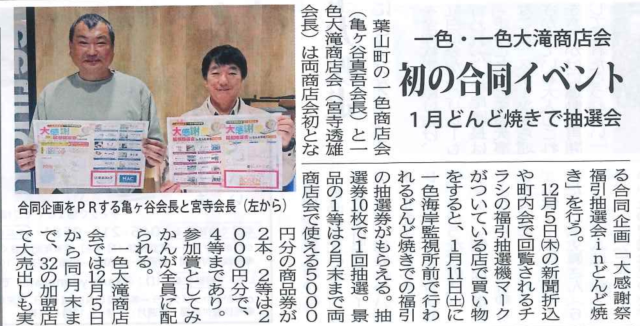 一色・一色大滝商店会
初の合同イベント
1月どんど焼きで抽選会
葉山町の一色商店会
(亀ヶ谷真吾会長)と一
色大滝商店会(宮寺透雄
会長)は両商店会初とな
る合同企画「大感謝祭
福引抽選会inどんど焼
き」を行う。
12月5日㈭の新聞折込
や町内会で回覧されるチ
ラシの福引抽選機マーク
がついている店で買い物
をすると、1月11日㈯に
一色海岸監視所前で行わ
れるどんど焼きでの福引
の抽選券がもらえる。抽
選券10枚で1回抽選。景
品の1等は2月末まで両
商店会で使える5000
円分の商品券が
2本。2等は2
000円分で、
4等まであり。
参加賞としてみ
かんが全員に配
られる。
一色大滝商店
会では12月5日
から同月末ま
で、32の加盟店
で大売出しも実
大感謝
大感謝
合同企画をPRする亀ヶ谷会長と宮寺会長(左から)